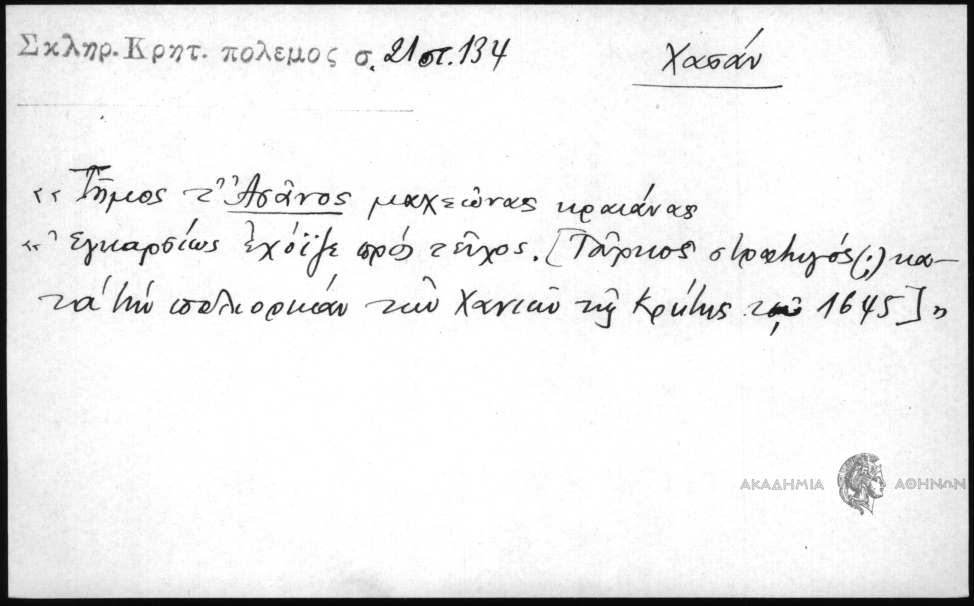 Σκληρ. Κρητ. πολεμος σ. 21 στ. 134
Χασάν
« Τῆμος τ' Ἀσᾶνος μαχεώνας κραιάνας
« Ἐγκαρσίως ἐχόϊζε πρὸς τεῖχος. [Τοῦρκος στρατηγός (;) κα-
τὰ τὴν πολιορκίαν τῶν Χανιῶν τῆς Κρήτης τῷ 1645]»
ΑΚΑΔΗΜΙΑ ΑΘΗΝΩΝ